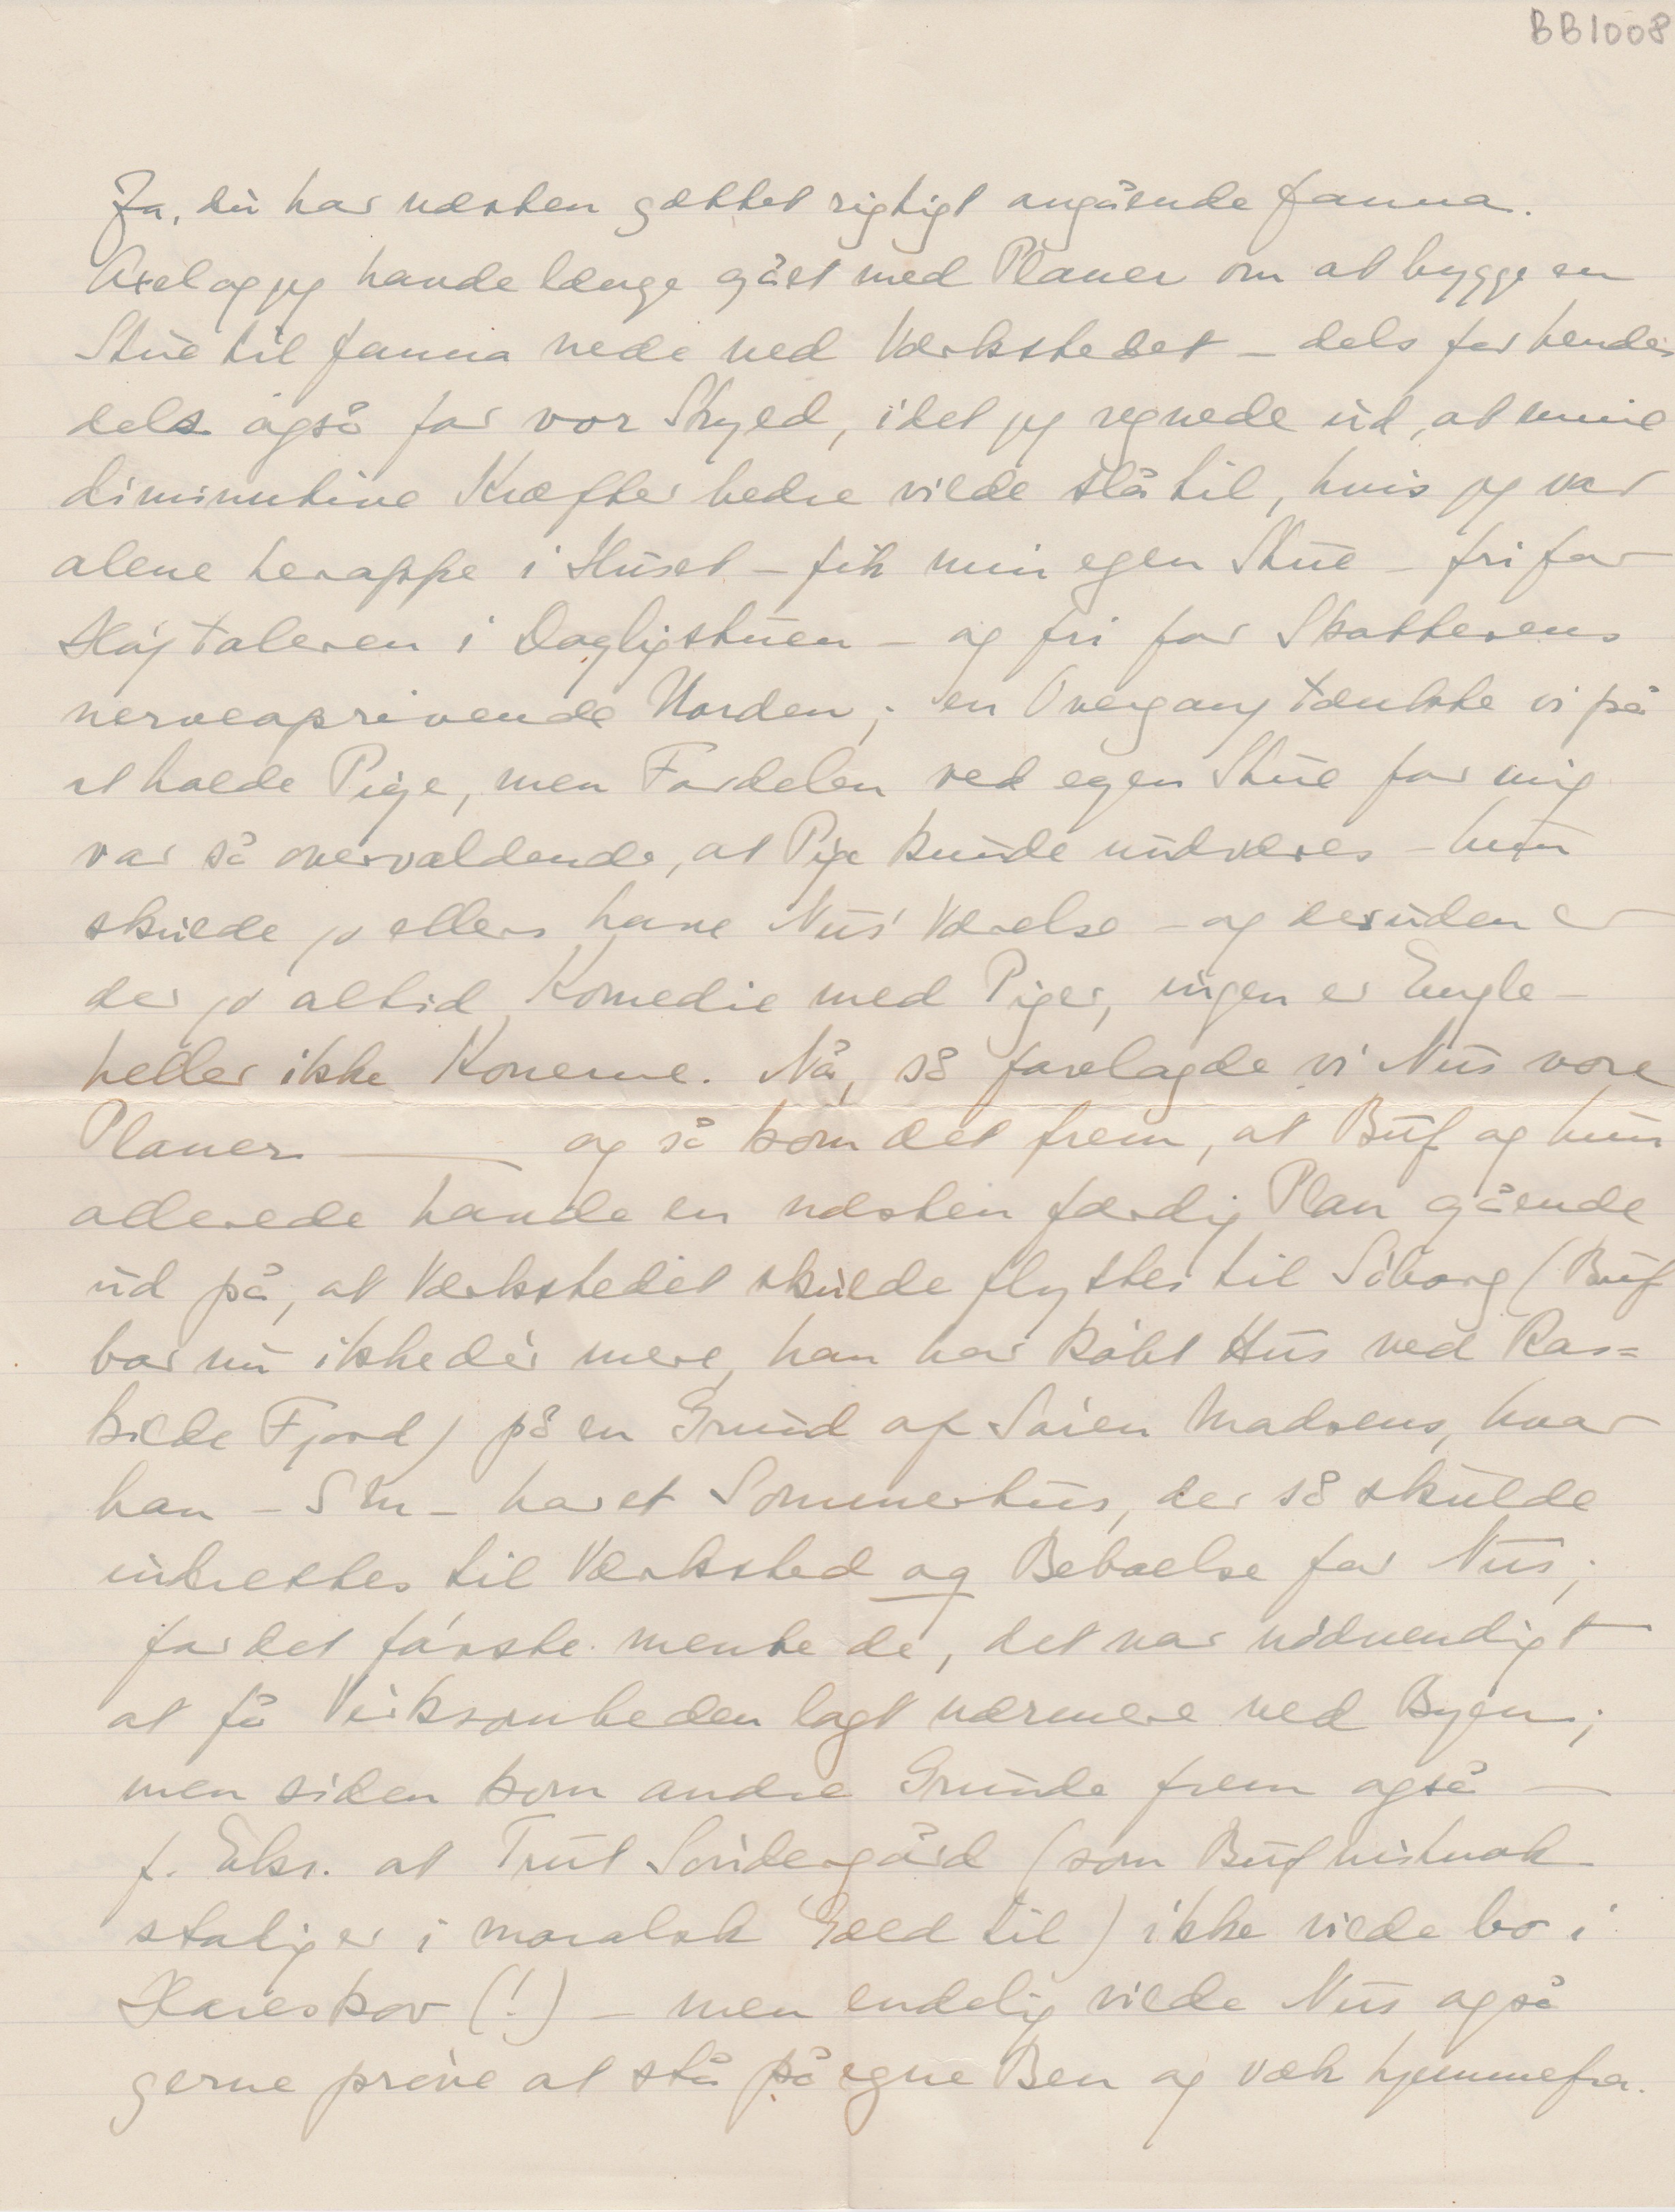 BB1008
Ja, du har næsten gættet rigtigt angående Janna.
Axel og jeg havde længe gået med Planer om at bygge en
Stue til Janna nede ved Værkstedet – dels for hendes
dels også for vor Skyld, idet jeg regnede ud, at mine
diminutive Kræfter bedre vilde slå til, hvis jeg var
alene heroppe i Huset – fik min egen Stue – fri for
Højtaleren i Dagligstuen – og fri for Skatterens
nerveoprivende Uorden; en Overgang tænkte vi på
at holde Pige, men Fordelen ved egen Stue for mig
var så overvældende, at Pige kunde undværes – hun
skulde jo ellers have Nus' Værelse – og desuden er
der jo altid Komedie med Piger, ingen er Engle –
heller ikke Konerne. Nå, så forelagde vi Nus vore
Planer —— og så kom det frem, at Buf og hun
allerede havde en næsten færdig Plan gående
ud på, at Værkstedet skulde flyttes til Söborg (Buf
bor nu ikke dèr mere, han har købt Hus ved Ros=
kilde Fjord) på en Grund af Sören Madsens, hvor
han – SM – har et Sommerhus, der så skulde
indrettes til Værksted og Beboelse for Nus;
for det første mente de, det var nødvendigt
at få Virksomheden lagt nærmere ved Byen;
men siden kom andre Grunde frem også –
f. Eks. at Trut Söndergård (som Buf nistnok
stadig er i moralsk Gæld til) ikke vilde bo i
Hareskov (!) – men endelig vilde Nus også
gerne prøve at stå på egne Ben og væk hjemmefra.